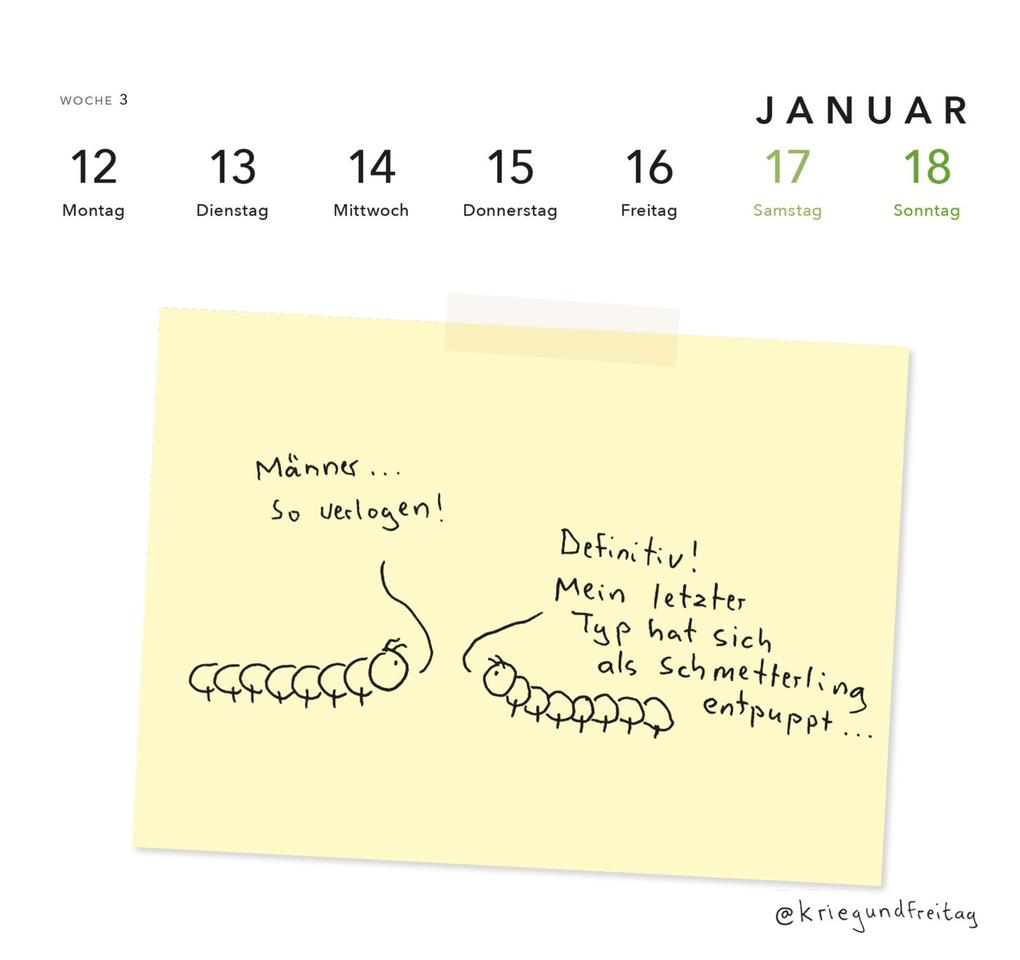 WOCHE 3
JANUAR
12 13 14 15 16 17 18
Montag Dienstag Mittwoch Donnerstag Freitag Samstag Sonntag
Männer...
So verlogen!
Definitiv!
Mein letzter
Typ hat sich
als Schmetterling
entpuppt...
@kriegundfreitag